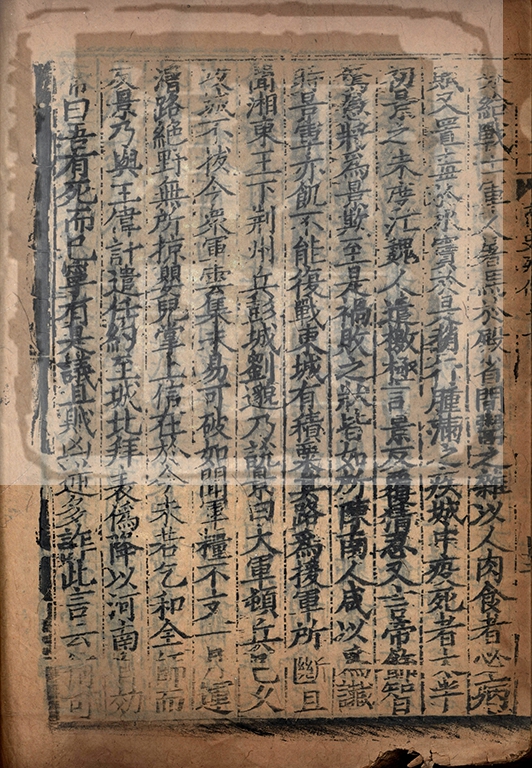 分給戰士軍人屠馬於殿省間鬻之雜以人肉食者必病
賊又置毒於水竇於是稍行腫滿之疾城中疫死者太半
初景之未度江魏人遣檄極言景反覆猜忍又言帝飾智
驚愚將為景欺至是禍敗之狀皆如所陳南人咸以為讖
時景軍亦飢不能復戰東城有積粟其路爲援軍所斷且
聞湘東王下荊州兵彭城劉邈乃說景曰大軍頓兵已久
攻城不拔今衆軍雲集未易可破如聞軍糧不支一月運
漕路絶野無所掠嬰兒掌上信在於今未若乞和全師而
反景乃與王偉計遣任約至城北拜表僞降以河南自効
帝曰吾有死而已寧有是議且賊凶逆多詐此言云何可